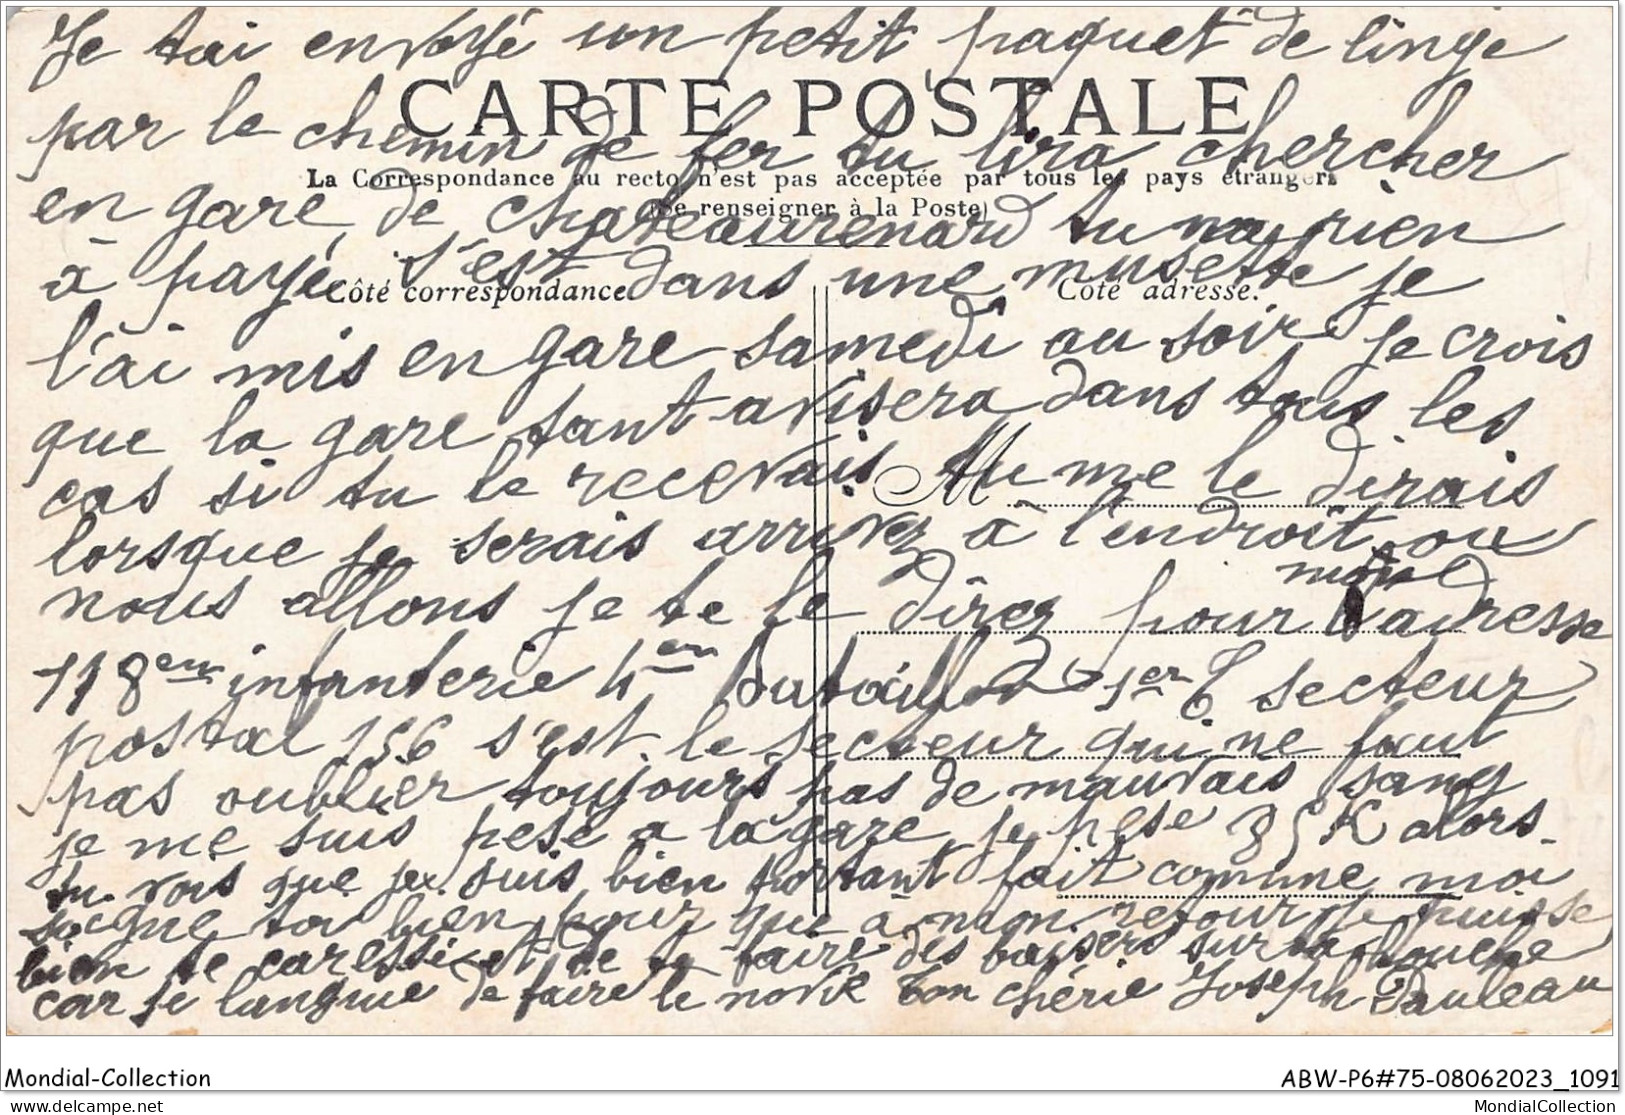 Je tai envoyé un petit paquet de linge
CARTE POSTALE
par le chemin de fer tu lira chercher
La Correspondance au recto n'est pas acceptée par tous les pays étrangers
(Se renseigner à la Poste)
en gare de chateaurenard tu na rien
à payé s'est dans une musette je
Côté correspondance Côté adresse.
l'ai mis en gare samedi au soir je crois
que la gare tant avisera dans tous les
cas si tu le recevais tu me le dirais
M
lorsque je serais arrivez à l'endroit ou
nous allons je te le direz pour l'adresse
118em infanterie 4em bataillon 1er C secteur
postal 156 s'est le secteur qui ne faut
pas oublier toujours pas de mauvais sang
je me suis pesé a la gare je pese 85K alors
tu vois que je suis bien portant fait comme moi
soigne toi bien pour que à mon retour je puisse
bien te caressé et de te faire des baisers sur ta bouche
car je langui de faire le novie Ton chérie Joseph Pauleau
Mondial-Collection ABW-P6#75-08062023_1091
delcampe.net MondialCollection